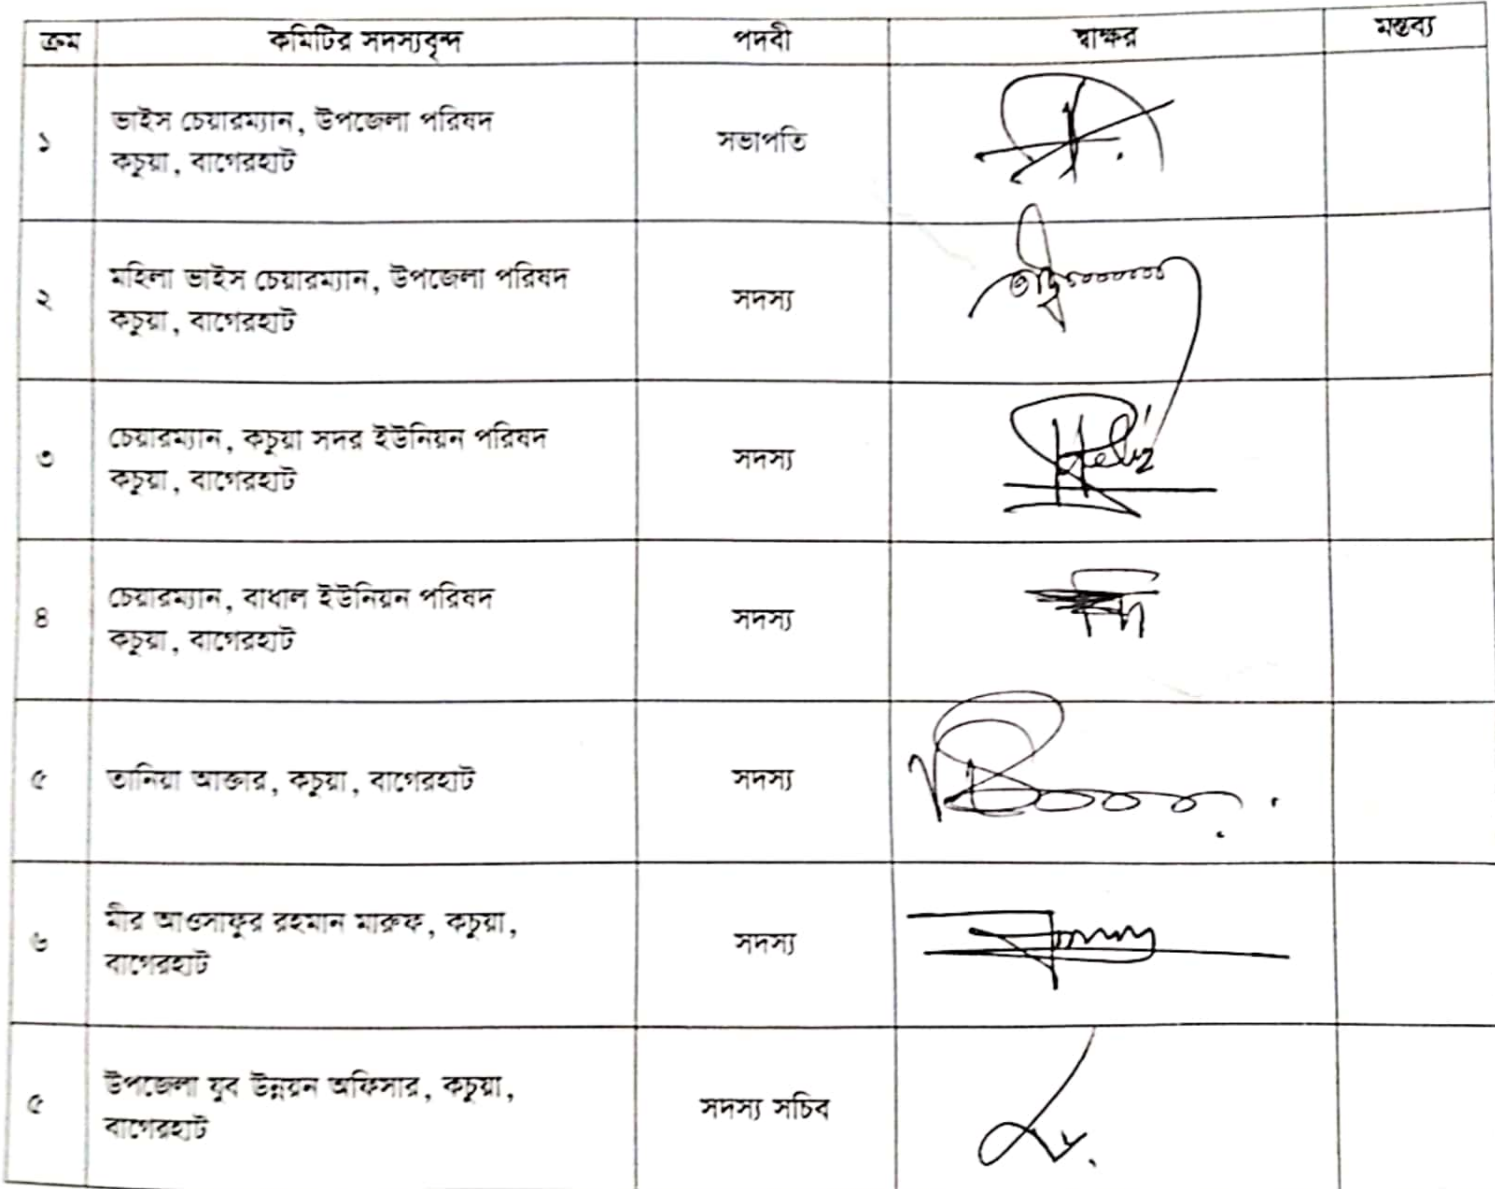 ক্রম কমিটির সদস্যবৃন্দ পদবী স্বাক্ষর মন্তব্য
১ ভাইস চেয়ারম্যান, উপজেলা পরিষদ
কচুয়া, বাগেরহাট সভাপতি
২ মহিলা ভাইস চেয়ারম্যান, উপজেলা পরিষদ
কচুয়া, বাগেরহাট সদস্য
৩ চেয়ারম্যান, কচুয়া সদর ইউনিয়ন পরিষদ
কচুয়া, বাগেরহাট সদস্য
৪ চেয়ারম্যান, বাধাল ইউনিয়ন পরিষদ
কচুয়া, বাগেরহাট সদস্য
৫ তানিয়া আক্তার, কচুয়া, বাগেরহাট সদস্য
৬ মীর আওসাফুর রহমান মারুফ, কচুয়া,
বাগেরহাট সদস্য
৫ উপজেলা যুব উন্নয়ন অফিসার, কচুয়া,
বাগেরহাট সদস্য সচিব